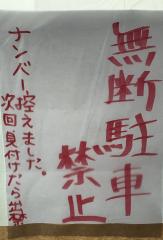 無断駐車
禁止
ナンバー控えました。
次回見付けたら